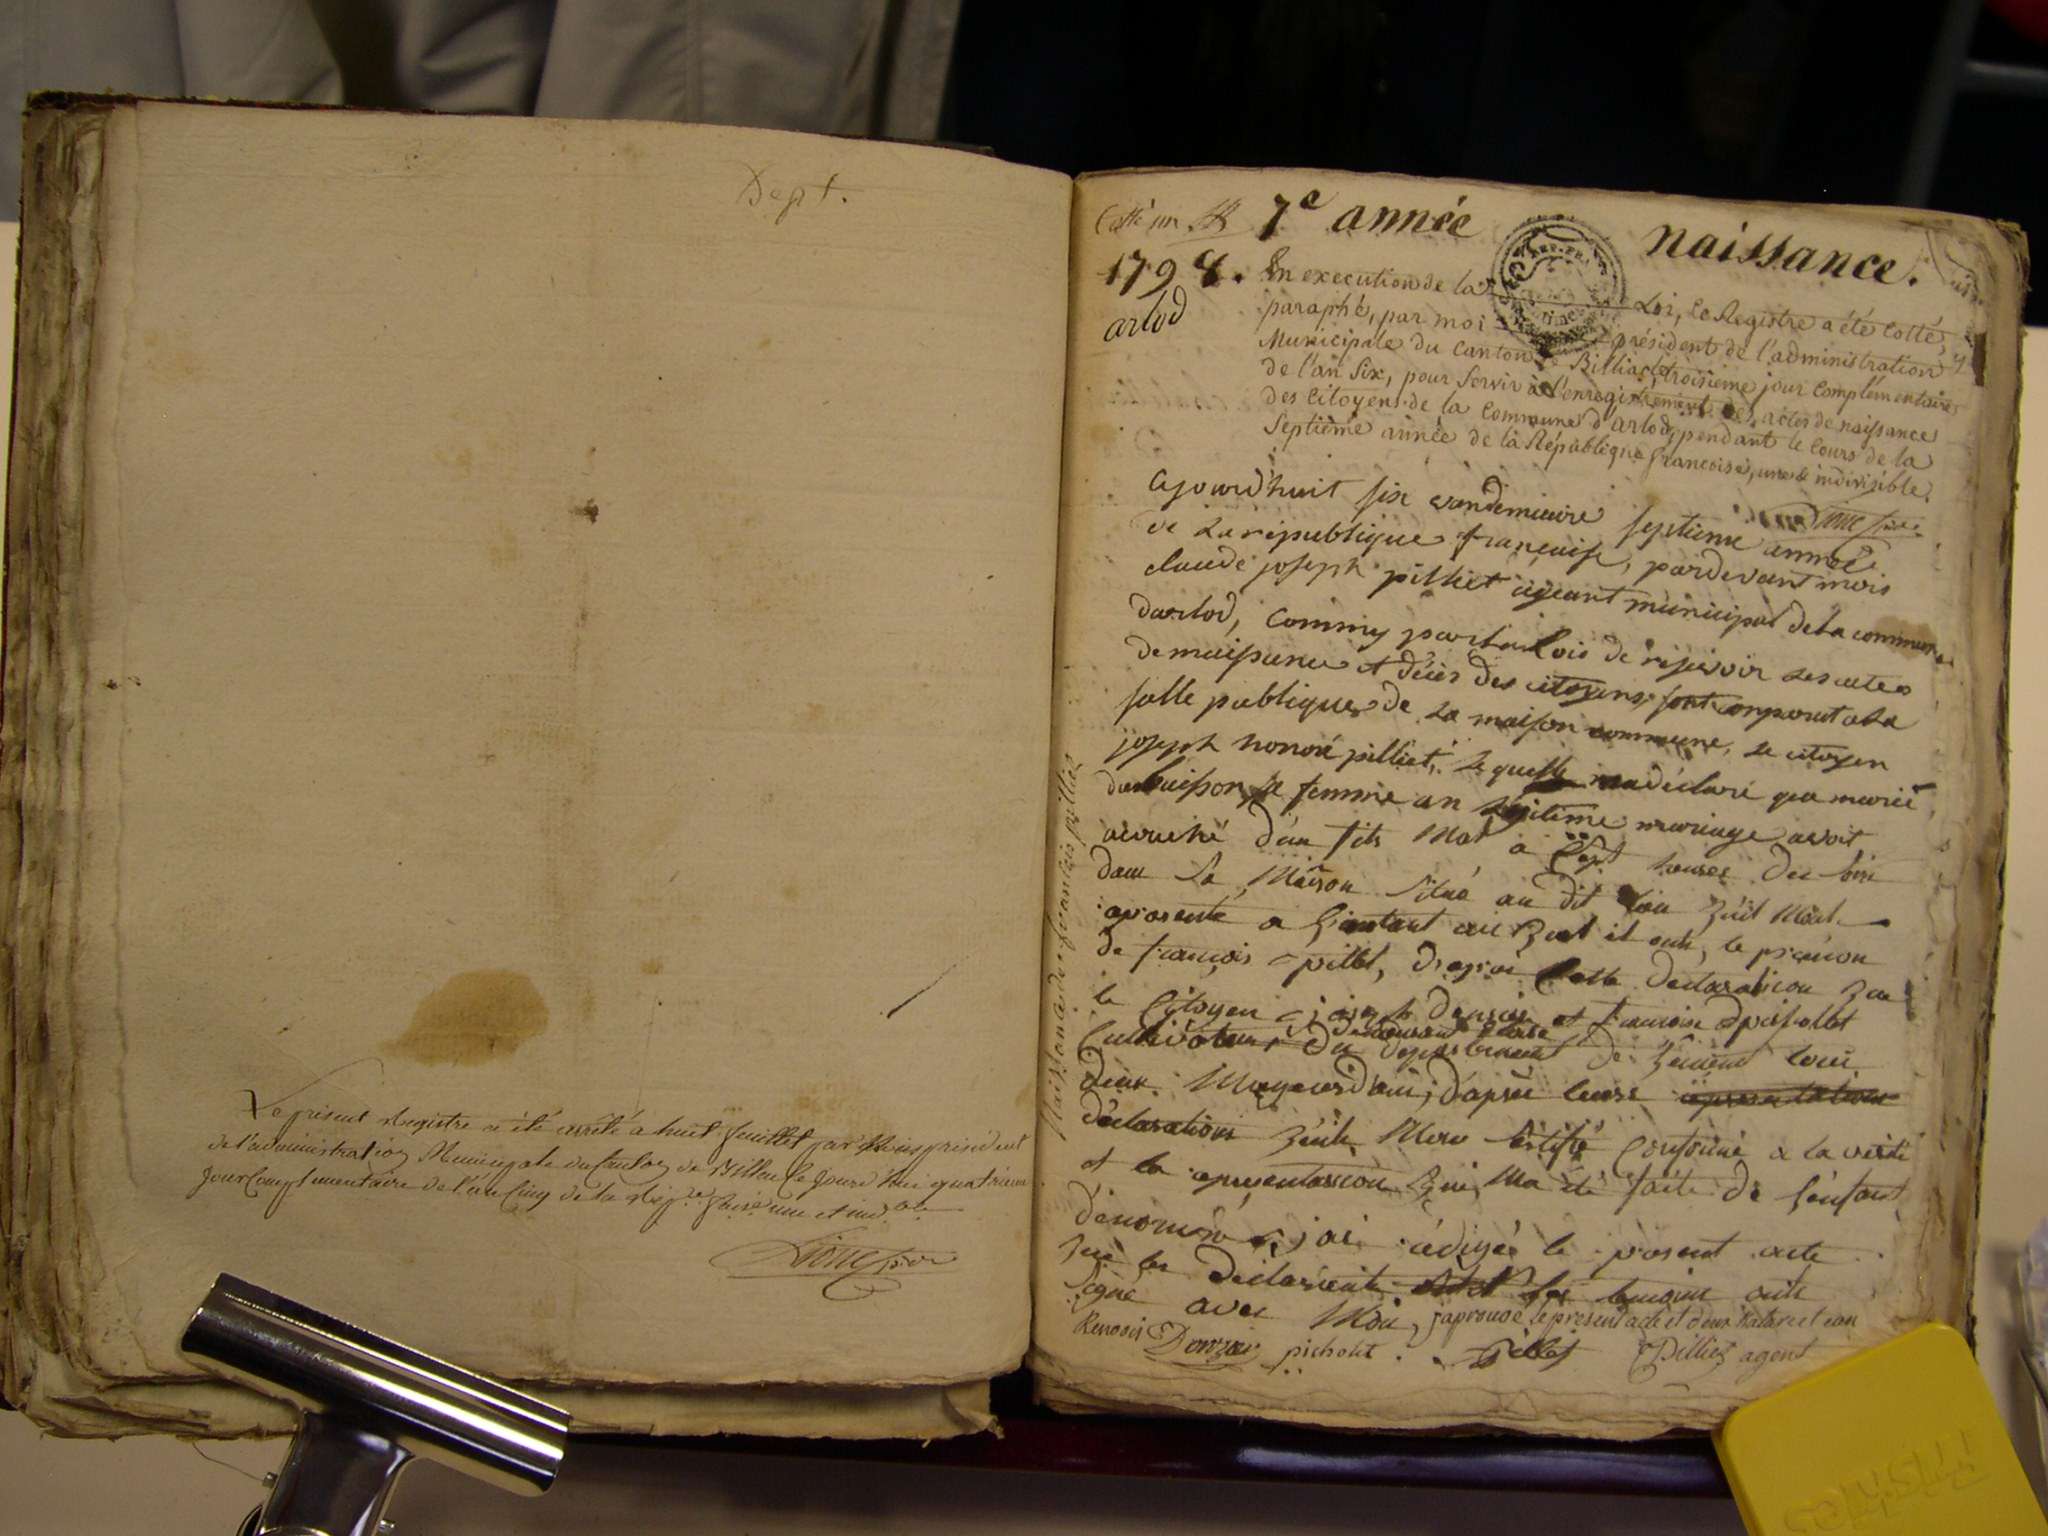 Dept.
Le present Registre a été arrêté a huit feuillet par Nous président
de l'administration Municipale du Canton de Billiat le Jourd'hui quatrieme
Jour Complementaire de l'an Cinq de la Rép.e une et
Cotté un
7e année
naissance.
1798.
arlod
En execution de la Loi, ce Registre a été Cotté,
paraphé, par moi président de l'administration
Municipale du Canton Billiat, troisieme jour Complémentaire
de l'an Six, pour Servir à l'enregistrement des actes de naissance
des Citoyens de la Commune d'arlod, pendant le Cours de la
Septième année de la République francoise, une & indivisible.
ajourd'huit six vandemiaire septieme année
de La république française, pardevant mois
claude joseph pilliet ageant municipal de la commune
darlod, Commis par la Lois de resevoir Les actes
de naissance et décès des citoyens, comparut a la
salle publique de La maison commune, Le citoyen
joseph honoré pilliet, Lequelle ma déclaré que marie
du buisson sa femme an Légitime mariage avoit
acouché d'un fils Mal a Sept heures du
dans Sa Maison Situé au dit lieu
apresenté a l'instant le prenom
de françois pillet, Declaration
le Citoyen joseph et
Cultivateur, du departement de
deux Mageurs d'apres leurs
declarations Certifié Conforme a la verité
et la representation qui Ma eté faite de l'enfant
denommé jai redigée le present acte
que les Declarents
Signé avec Moi, japrouve le present acte
Donzai picholet pilliet Pilliet agent
Naissance de francois pilliet